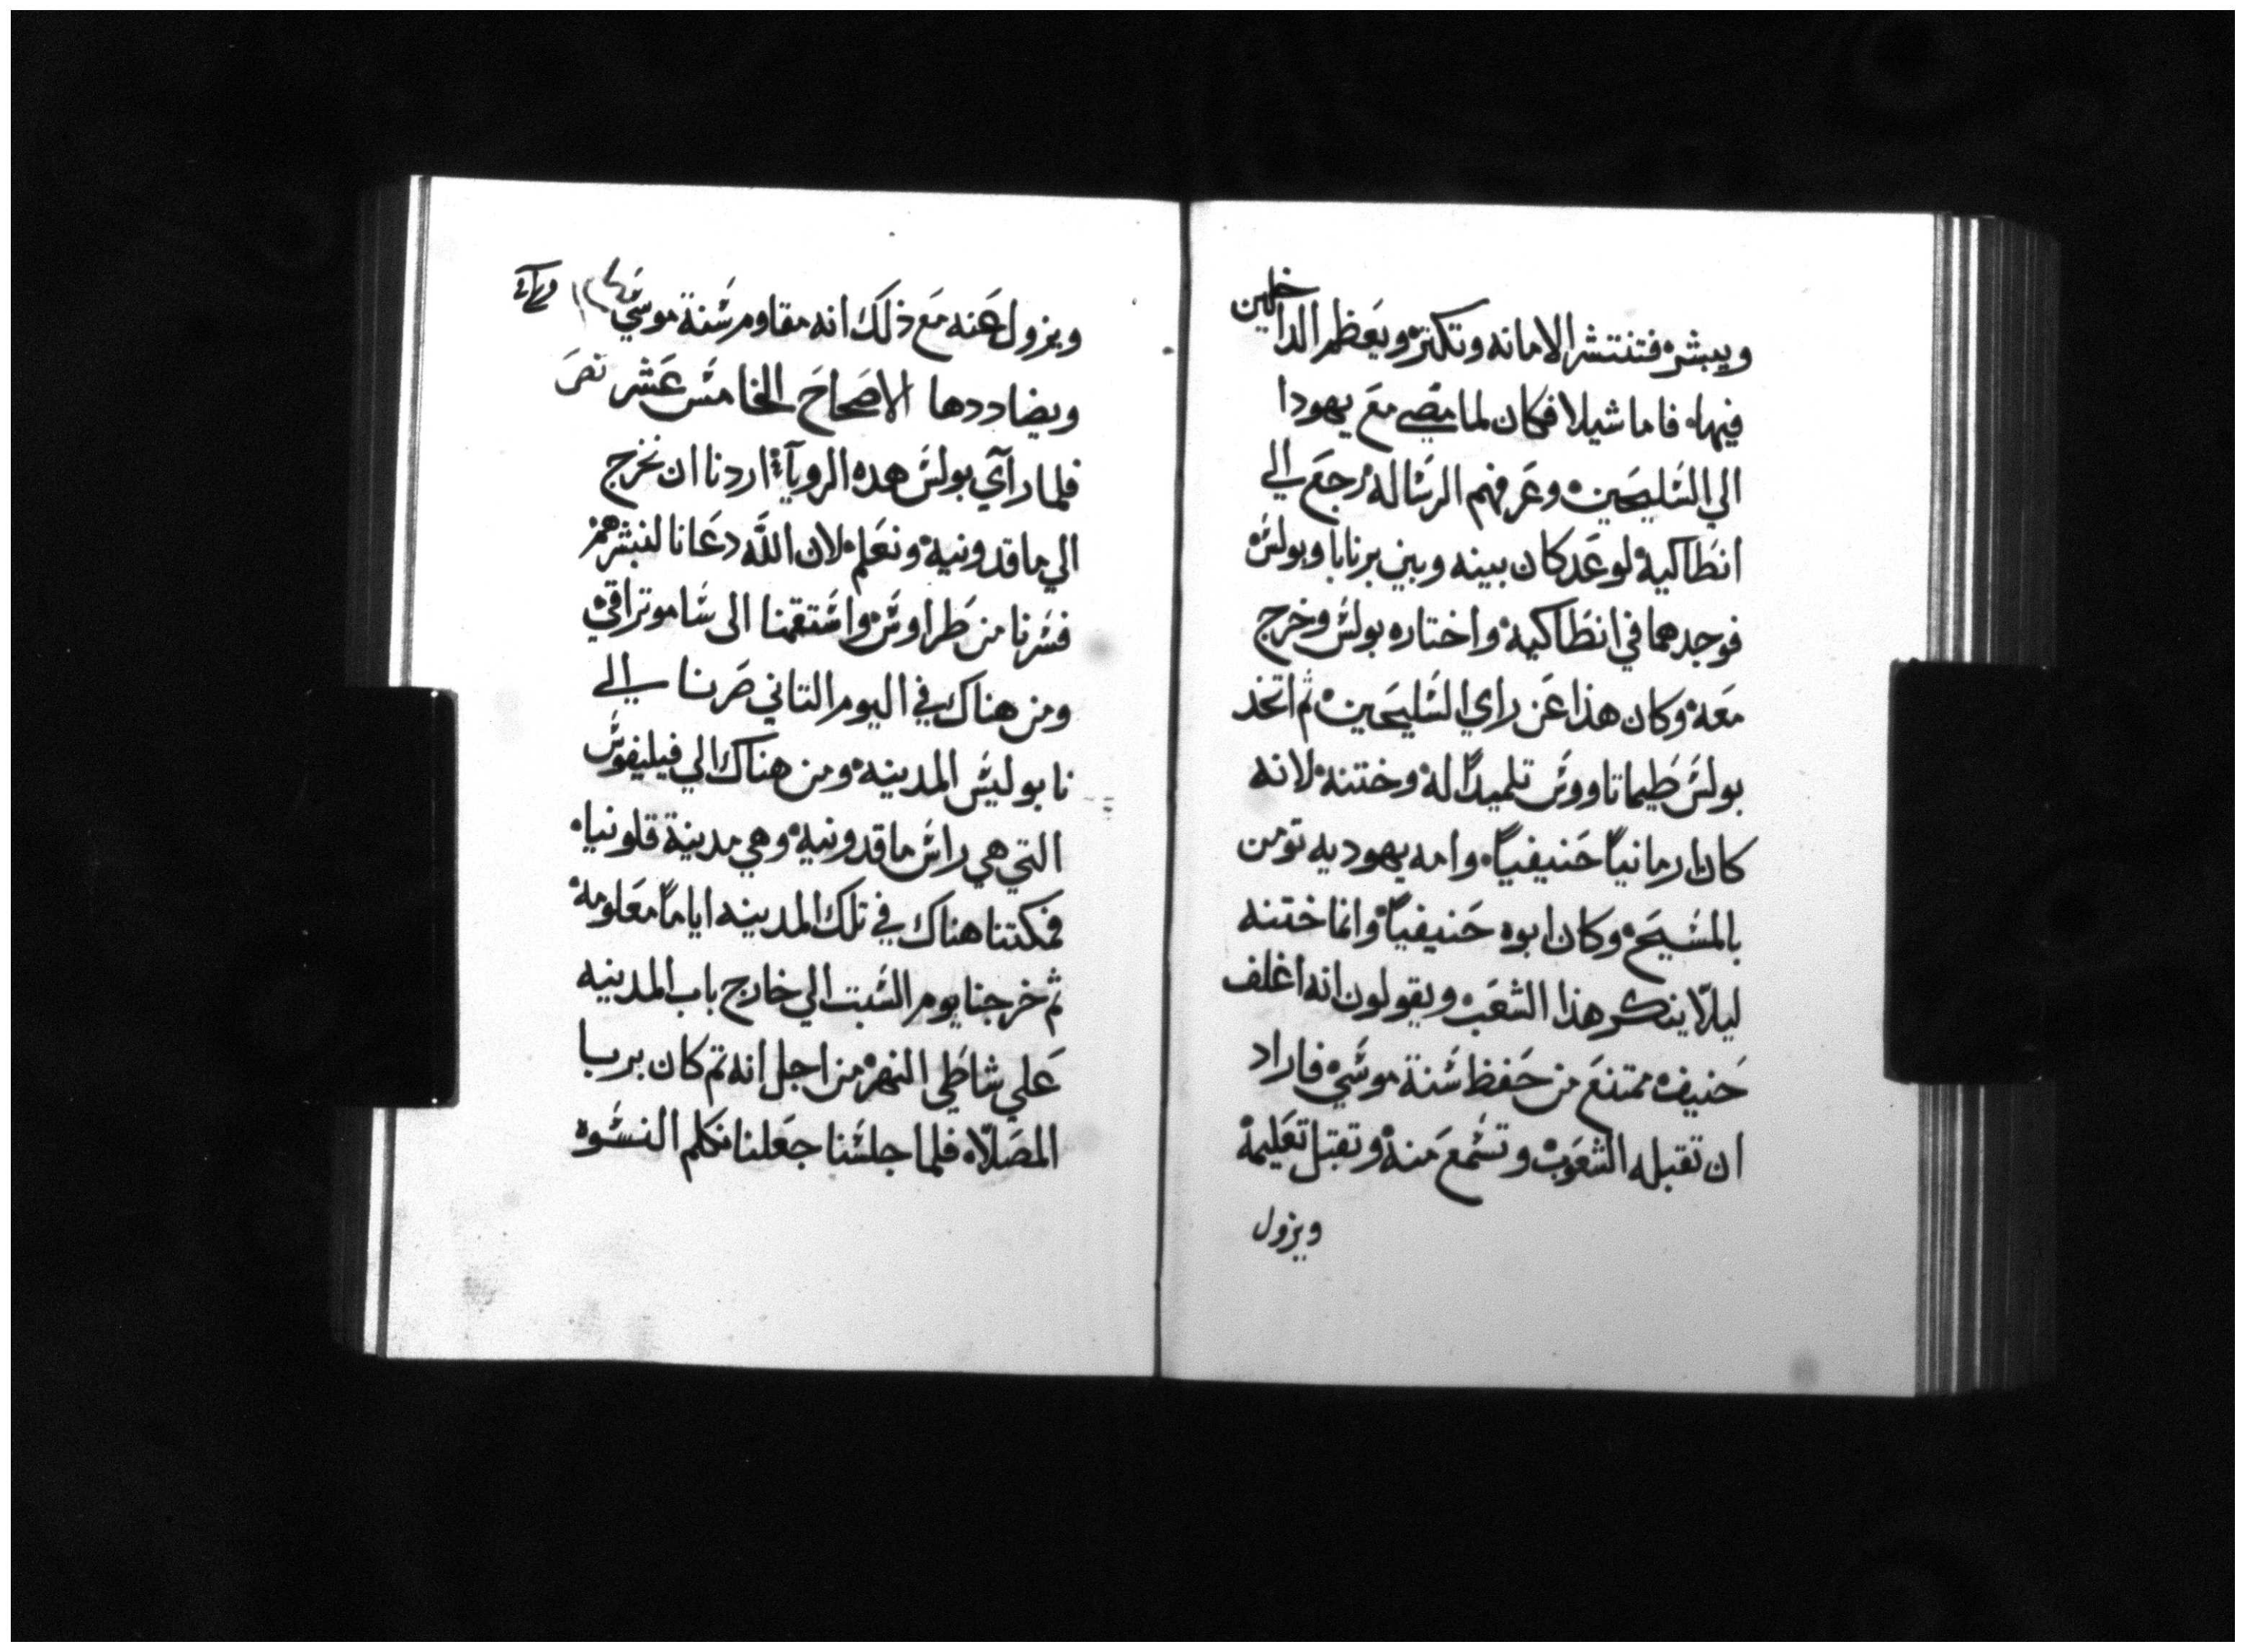 ويبشر فتنتشر الامانه وتكتر ويعظم الداخلين
فيها فاما شيلا فكان لما مضي مع يهودا
الي الشليحين وعرفهم الرشاله رجع الي
انطاكيه لوعد كان بينه وبين برنابا وبولش
فوجدهما في انطاكيه واختاره بولش وخرج
معه وكان هذا عن راي الشليحين ثم اتخد
بولش طيماتاووش تلميدًا له وختنه لانه
كان ارمانيًا حنيفيًا وامه يهوديه تومن
بالمشيح وكان ابوه حنيفيًا وانما ختنه
ليلّا ينكر هذا الشعب ويقولون انه اغلف
حنيف ممتنع من حفظ شنة موشي فاراد
ان تقبله الشعوب وتشمع منه وتقبل تعليمه
ويزول
ويزول عنه مع ذلك انه مقاوم شنة موشي
ويضاددها الاصحاح الخامش عشر نص
فلما رآي بولش هده الروياآ اردنا ان نخرج
الي ماقدونيه ونعلم لان اللّه دعانا لنبشرهم
فشرنا من طراوش واشتقمنا الى شاموتراقي
ومن هناك في اليوم التاني صرنا الي
نابوليش المدينه ومن هناك الي فيليفوش
التي هي راش ماقدونيه وهي مدينة قلونيا
فمكتنا هناك في تلك المدينه ايامًا معلومه
ثم خرجنا يوم الشبت الي خارج باب المدينه
علي شاطي النهر من اجل انه تم كان يربا
المصلّاه فلما جلشنا جعلنا نكلم النشوه